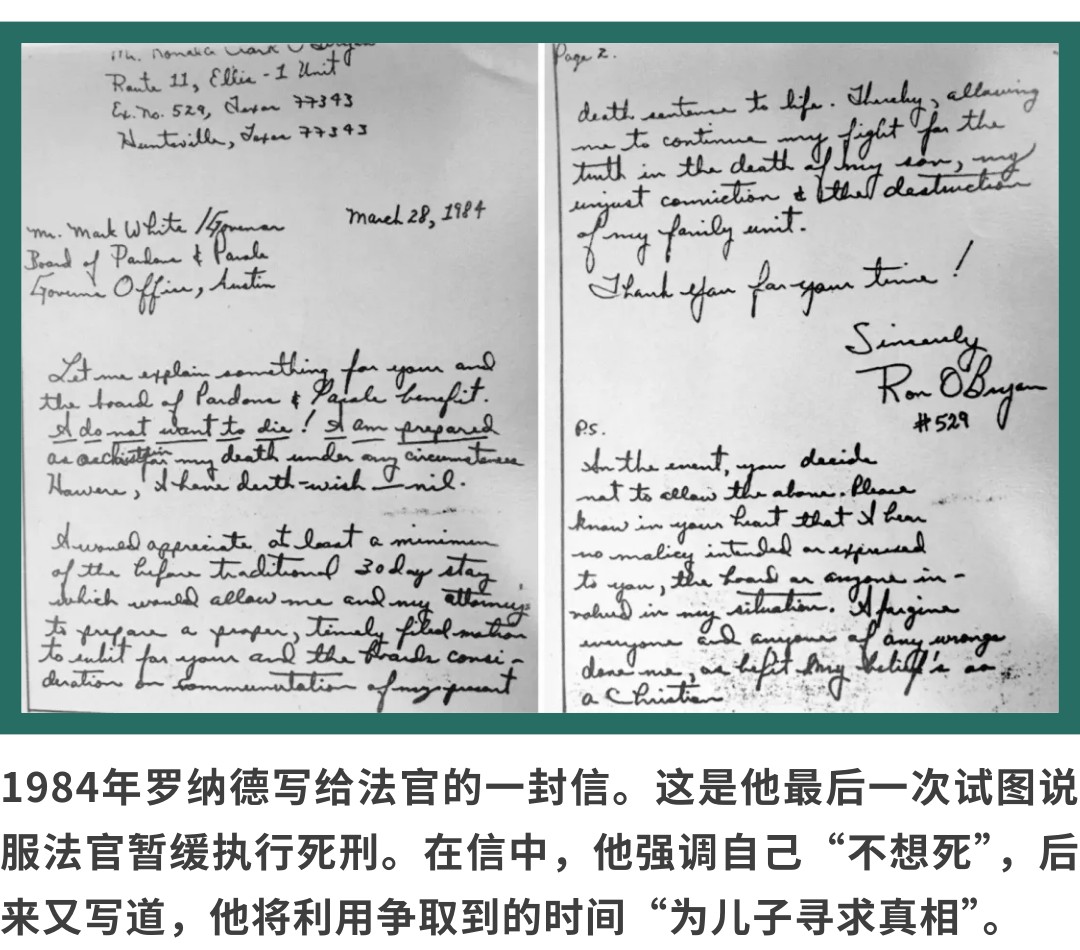 Mr. Ronald Clark O'Bryan
Route 11, Ellis-1 Unit
Ex. No. 529, Texas 77343
Huntsville, Texas 77343
March 28, 1984
Mr. Mark White / Governor
Board of Pardons & Parole
Governor Office, Austin
Let me explain something for your and
the board of Pardons & Parole benefit.
I do not want to die! I am prepared
as a christian for my death under any circumstances
However, I have death-wish — nil.
I would appreciate at least a minimum
of the before traditional 30 day stay
which would allow me and my attorneys
to prepare a proper, timely filed motion
to submit for your and the Boards consi-
deration on commutation of my present
Page 2.
death sentence to life. Thereby, allowing
me to continue my fight for the
truth in the death of my son, my
unjust conviction & the destruction
of my family unit.
Thank you for your time!
Sincerely
Ron O'Bryan
#529
P.S.
In the event, you decide
not to allow the above. Please
know in your heart that I bear
no malicy intended or expressed
to you, the board or anyone in-
volved in my situation. I forgive
everyone and anyone of any wrongs
done me, as befit my belief's as
a Christian
1984年罗纳德写给法官的一封信。这是他最后一次试图说
服法官暂缓执行死刑。在信中，他强调自己“不想死”，后
来又写道，他将利用争取到的时间“为儿子寻求真相”。